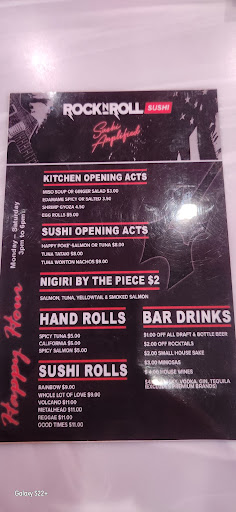 ROCK N ROLL SUSHI
Sushi Amplified
KITCHEN OPENING ACTS
MISO SOUP OR GINGER SALAD $3.00
EDAMAME SPICY OR SALTED 3.50
SHRIMP GYOZA 4.50
EGG ROLLS $5.00
SUSHI OPENING ACTS
HAPPY POKE-SALMON OR TUNA $8.00
TUNA TATAKI $8.00
TUNA WONTON NACHOS $9.00
NIGIRI BY THE PIECE $2
SALMON, TUNA, YELLOWTAIL & SMOKED SALMON
HAND ROLLS
SPICY TUNA $5.00
CALIFORNIA $5.00
SPICY SALMON $5.00
SUSHI ROLLS
RAINBOW $9.00
WHOLE LOT OF LOVE $9.00
VOLCANO $11.00
METALHEAD $11.00
REGGAE $11.00
GOOD TIMES $11.00
BAR DRINKS
$1.00 OFF ALL DRAFT & BOTTLE BEER
$2.00 OFF ROCKTAILS
$2.00 SMALL HOUSE SAKE
$3.00 MIMOSAS
HOUSE WINES
VODKA, GIN, TEQUILA
PREMIUM BRANDS)
Happy Hour
Monday - Saturday
3pm to 6pm
Galaxy S22+